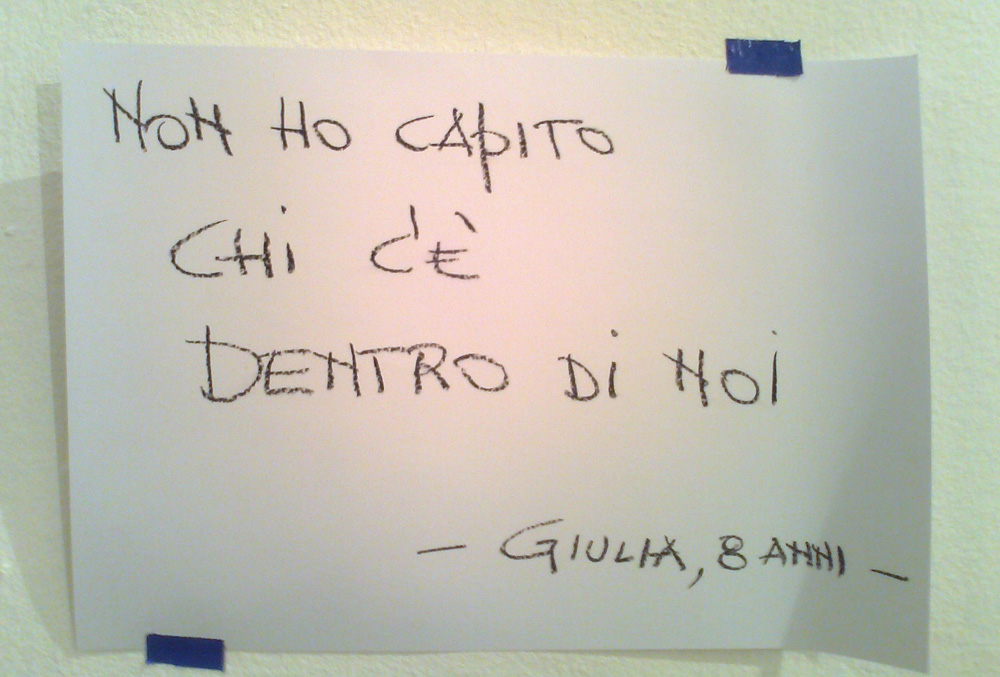 NON HO CAPITO
CHI C'È
DENTRO DI NOI
- GIULIA, 8 ANNI -